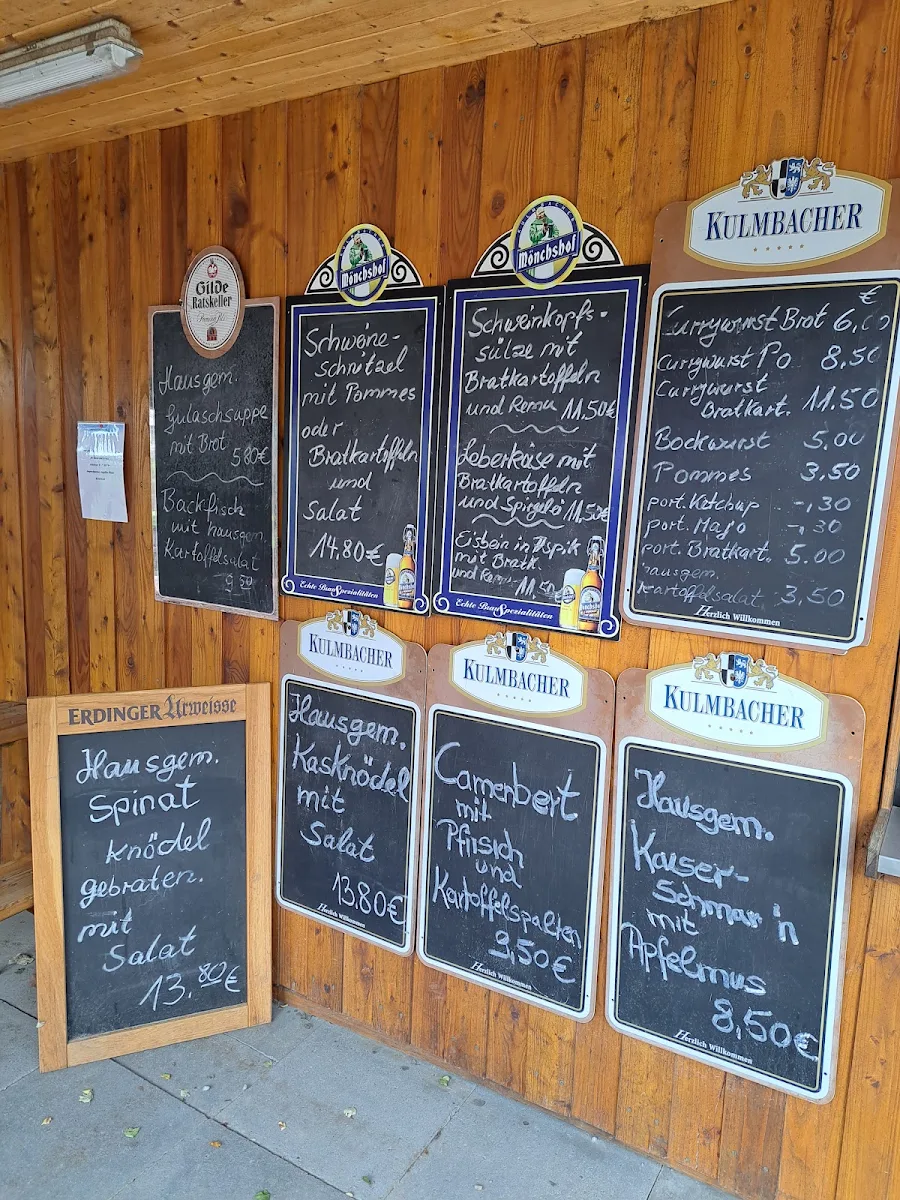 Gilde
Ratskeller
Hausgem.
Gulaschsuppe
mit Brot
5,80€
Backfisch
mit hausgem.
Kartoffelsalat
9,50
Mönchshof
Schweine-
schnitzel
mit Pommes
oder
Bratkartoffeln
und
Salat
14,80€
Echte BrauSpezialitäten
Mönchshof
Schweinkopfs-
sülze mit
Bratkartoffeln
und Remu 11,50€
Leberkäse mit
Bratkartoffeln
und Spiegelei 11,50€
Eisbein in Aspik
mit Bratk.
und Rem. 11,50
Echte BrauSpezialitäten
KULMBACHER
€
Currywurst Brot 6,00
Currywurst Po 8,50
Currywurst
Bratkart. 11.50
Bockwurst 5,00
Pommes 3,50
port. Ketchup -,30
port. Majo -,30
port. Bratkart. 5.00
hausgem.
Kartoffelsalat 3,50
Herzlich Willkommen
ERDINGER Urweisse
Hausgem.
Spinat
knödel
gebraten.
mit
Salat
13.80€
KULMBACHER
Hausgem.
Kasknödel
mit
Salat
13.80€
Herzlich Willkommen
KULMBACHER
Camenbert
mit
Pfirsich
und
Kartoffelspalten
9,50€
Herzlich Willkommen
KULMBACHER
Hausgem.
Kaiser-
schmar'n
mit
Apfelmus
8,50€
Herzlich Willkommen